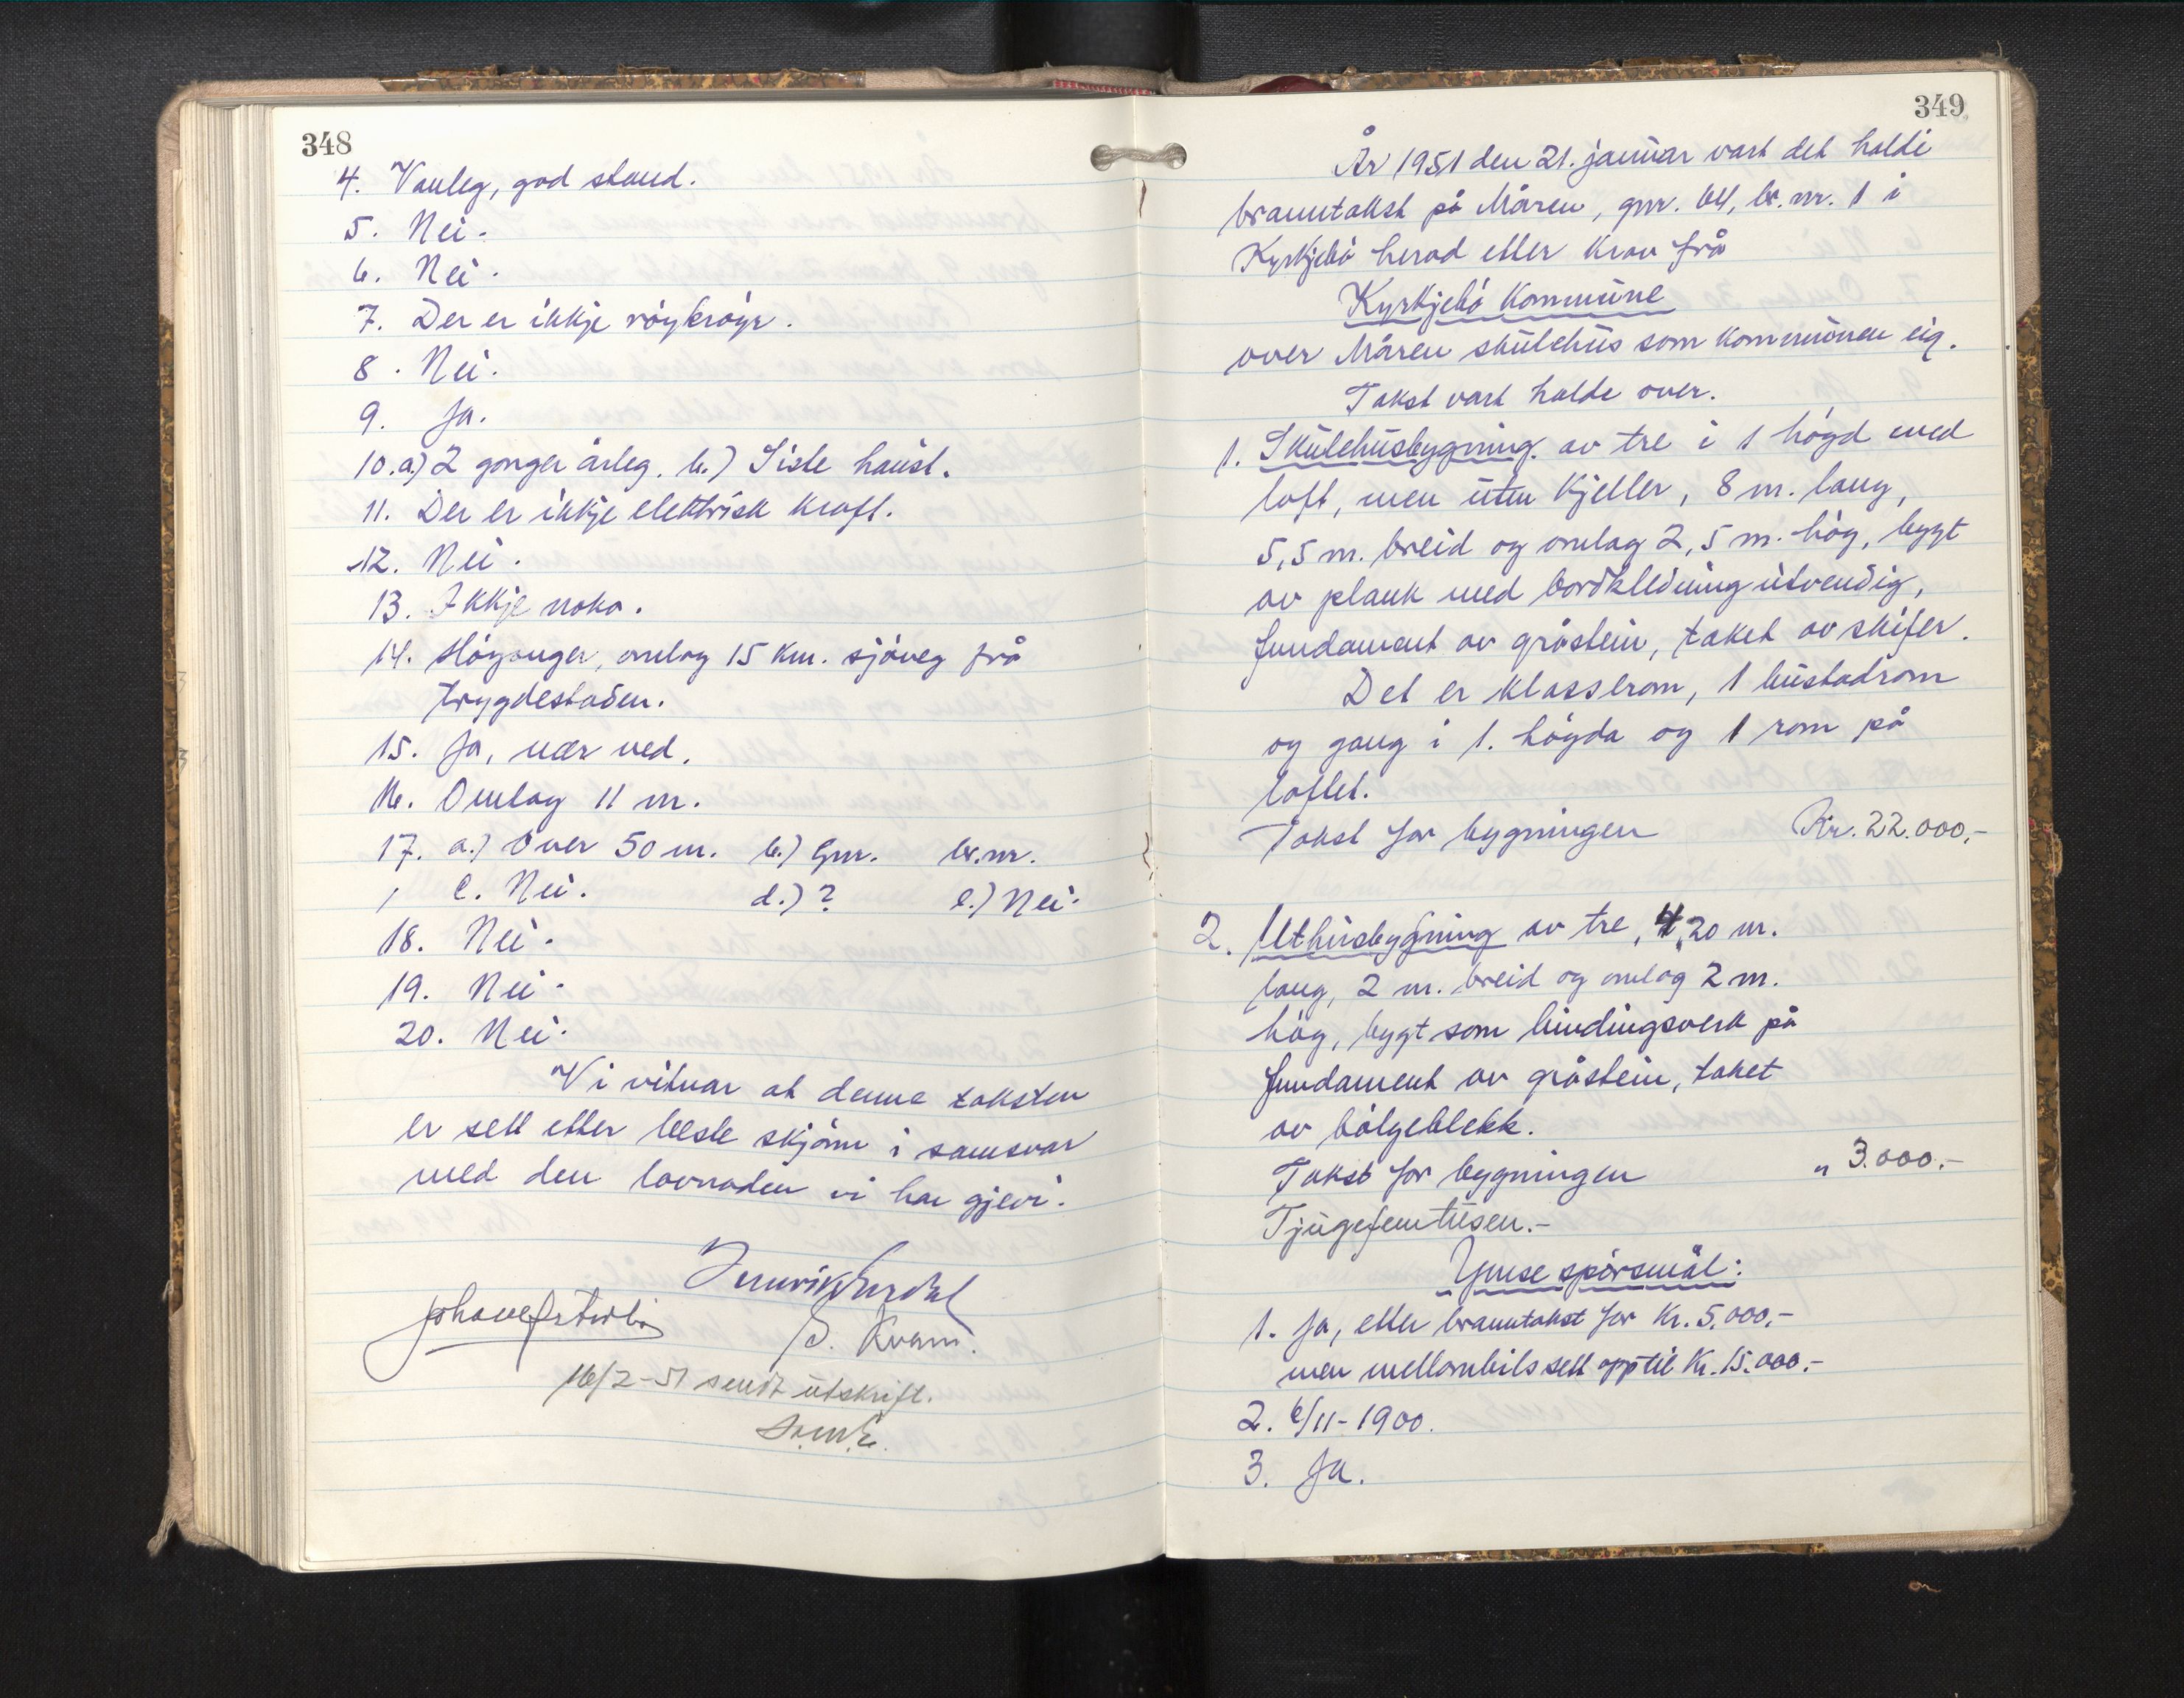 348
4. Vanleg, god stand.
5. Nei.
6. Nei.
7. Der er ikkje röykröyr.
8. Nei.
9. Ja.
10.a.) 2 gonger årleg. b.) Siste haust.
11. Der er ikkje elektrisk kraft.
12. Nei.
13. Ikkje noko.
14. Höyanger, omlag 15 km. sjöveg frå
trygdestaden.
15. Ja, nær ved.
16. Omlag 11 m.
17. a.) Over 50 m. b.) Gnr. br.nr.
c. Nei. d.) ? e.) Nei.
18. Nei.
19. Nei.
20. Nei.
Vi vitnar at denne taksten
er sett etter beste skjönn i samsvar
med den lovnaden vi har gjevi.
Kvam.
16/2-51 sendt utskrift.
349
År 1951 den 21. januar vart det haldi
branntakst på Måren, gnr. 64, br. nr. 1 i
Kyrkjebö herad etter krav frå
Kyrkjebö kommune
over Måren skulehus som kommunen eig.
Takst vart halde over.
1. Skulehusbygning. av tre i 1 högd med
loft, men utan kjeller, 8 m. lang,
5,5 m. breid og omlag 2,5 m. hög, bygt
av plank med bordkledning utvendig,
fundament av gråstein, taket av skifer.
Det er klasserom, 1 bustadrom
og gang i 1. högda og 1 rom på
loftet.
Takst for bygningen Kr. 22.000,-
2. Uthusbygning av tre, 4,20 m.
lang, 2 m. breid og omlag 2 m.
hög, bygt som bindingsverk på
fundament av gråstein, taket
av bölgeblekk.
Takst for bygningen " 3.000.-
Tjugefemtusen.-
Ymse spörsmål:
1. Ja, etter branntakst for Kr. 5.000,-
men mellombils sett opp til Kr. 15.000.-
2. 6/11-1900.
3. Ja.